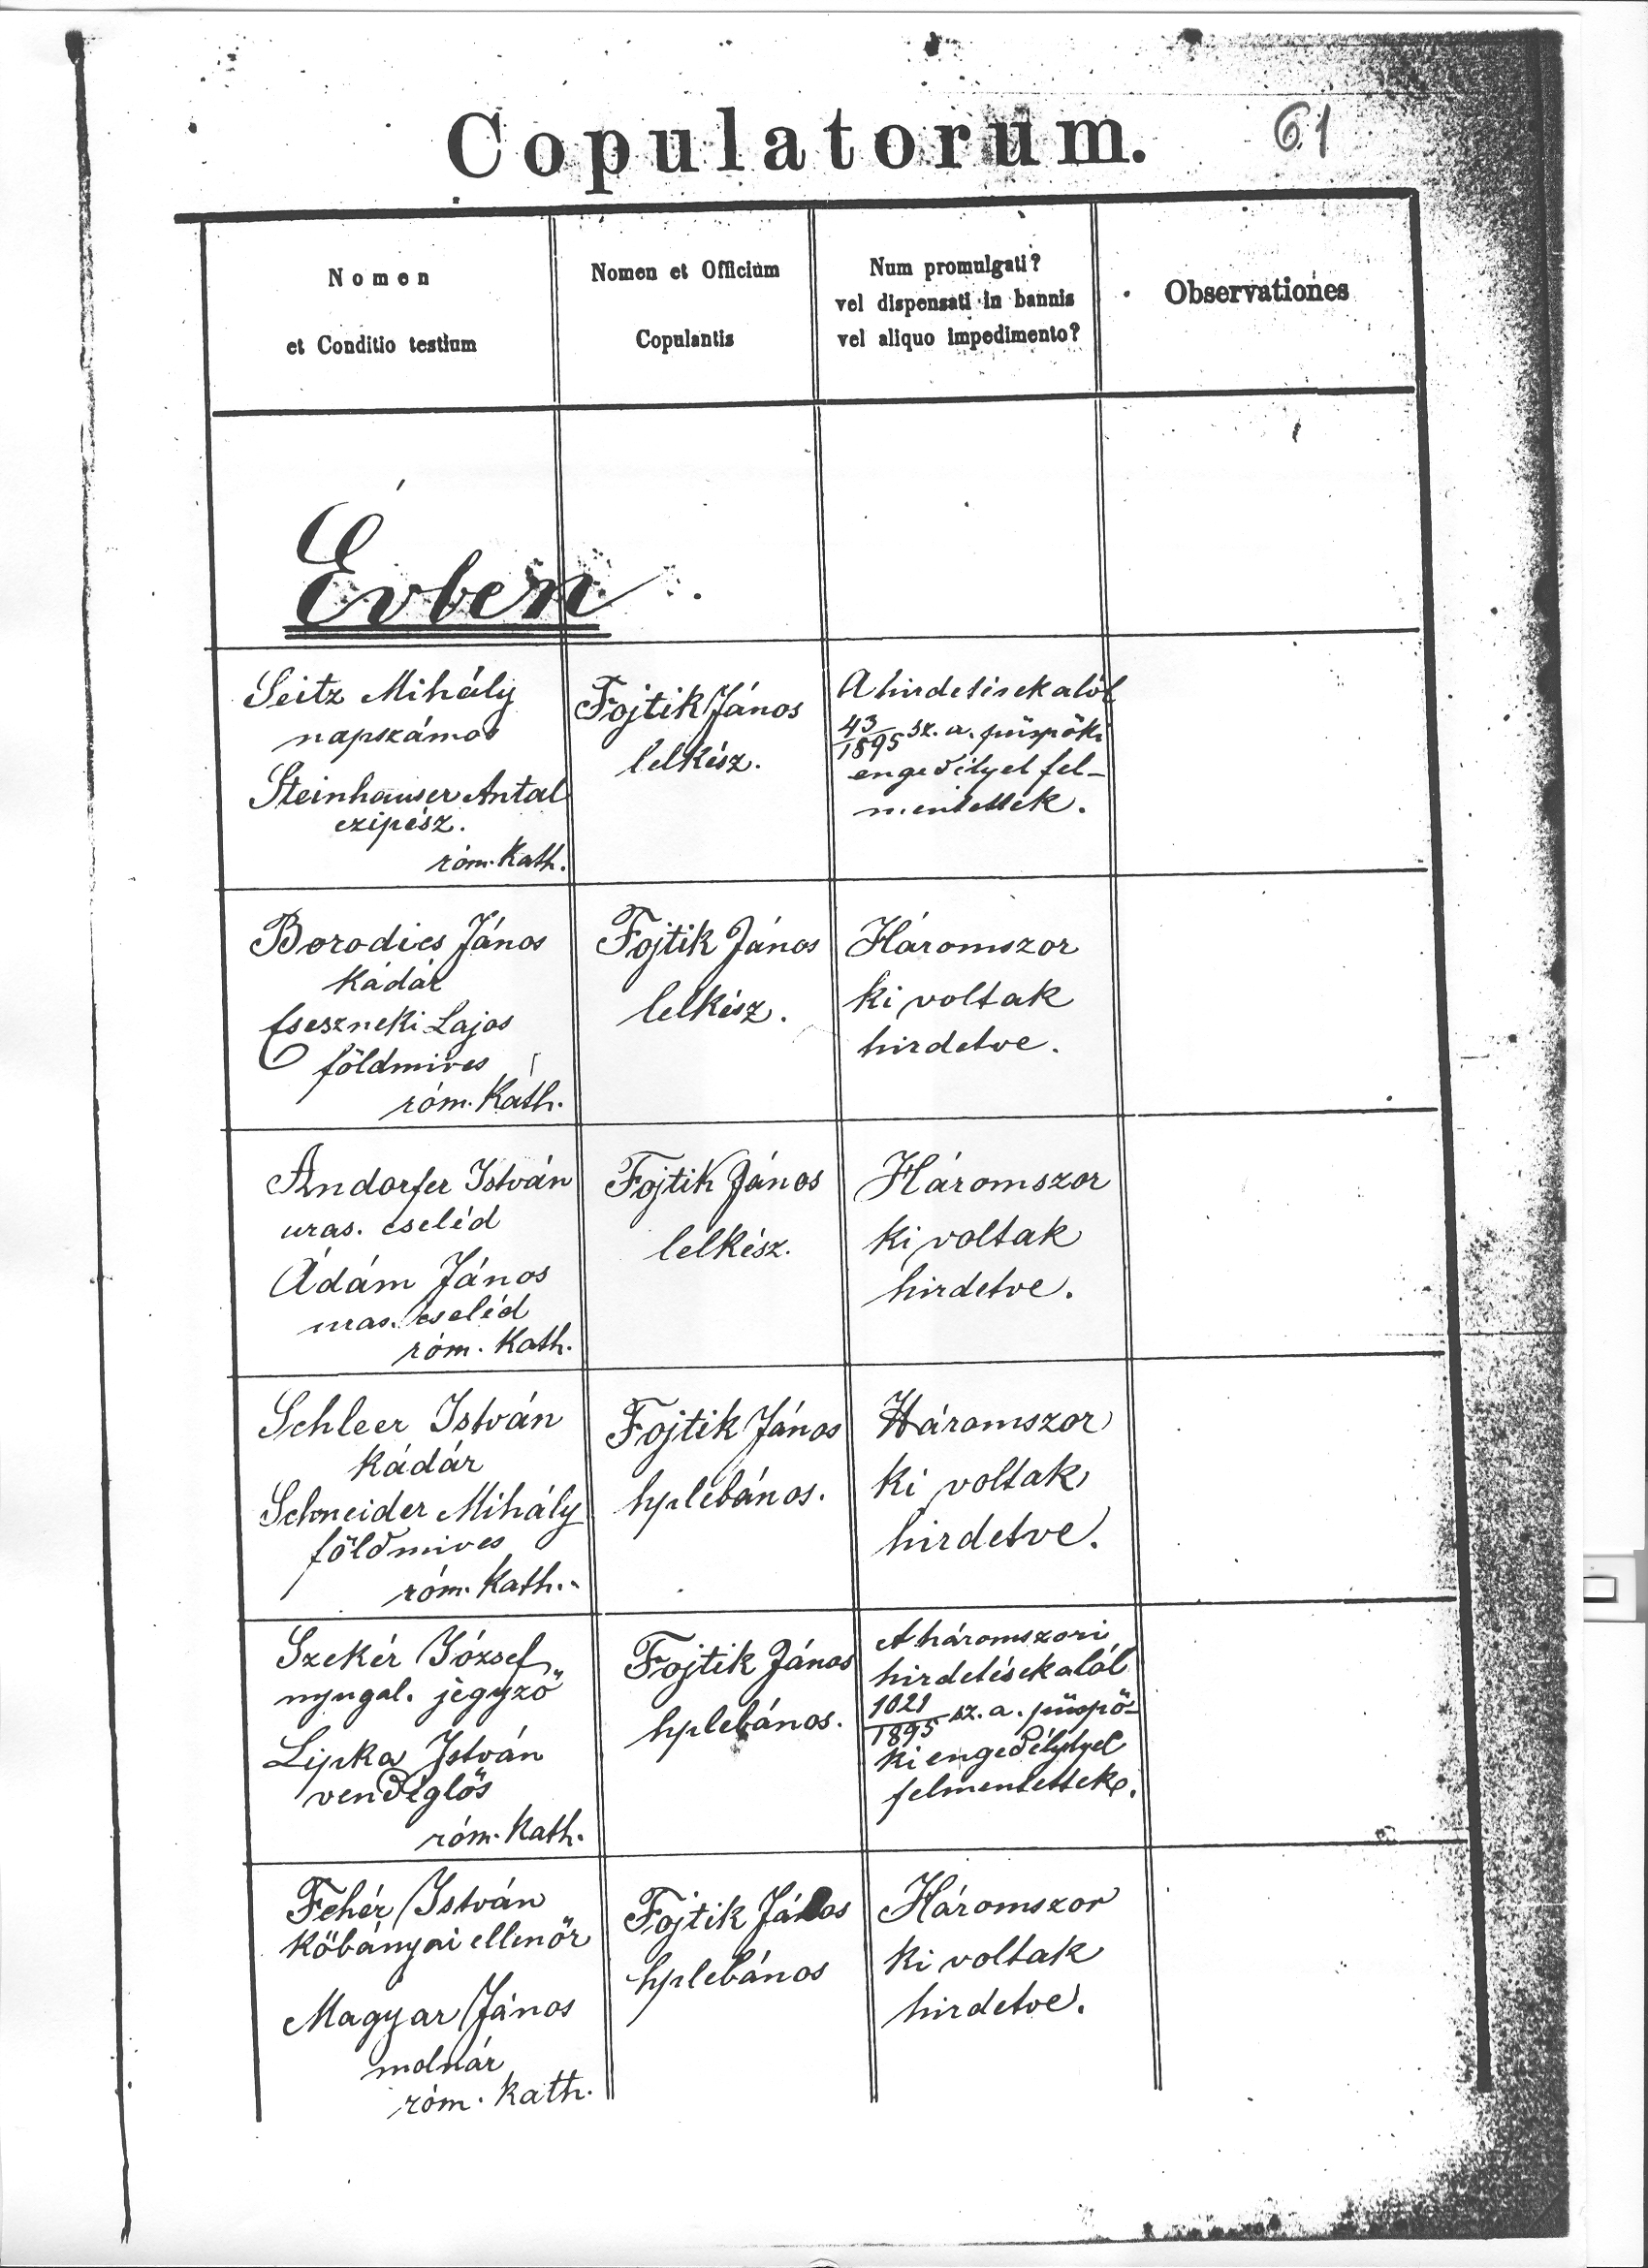 Copulatorum.
61
Nomen
et Conditio testium
Nomen et Officium
Copulantis
Num promulgati?
vel dispensati in bannis
vel aliquo impedimento?
Observationes
Évben
Seitz Mihály
napszámos
Steinhauser Antal
czipész.
róm. Kath.
Fojtik János
lelkész.
A hirdetések alól
43/1895 sz. a. püspöki
engedélyel fel-
mentettek.
Borodics János
Kádár
Cseszneki Lajos
földmives
róm. Kath.
Fojtik János
lelkész.
Háromszor
ki voltak
hirdetve.
Andorfer István
uras. cseléd
Ádám János
uras. cseléd
róm. Kath.
Fojtik János
lelkész.
Háromszor
ki voltak
hirdetve.
Schleer István
Kádár
Schneider Mihály
földmives
róm. Kath.
Fojtik János
hplébános.
Háromszor
ki voltak
hirdetve.
Szekér József
nyugal. jegyző
Lipka István
vendéglős
róm. Kath.
Fojtik János
hplebános.
A háromszori
hirdetések alól
1021/1895 sz. a. püspö-
ki engedélylyel
felmentettek.
Fehér István
kőbányai ellenőr
Magyar János
molnár
róm. Kath.
Fojtik János
hplebános
Háromszor
ki voltak
hirdetve.